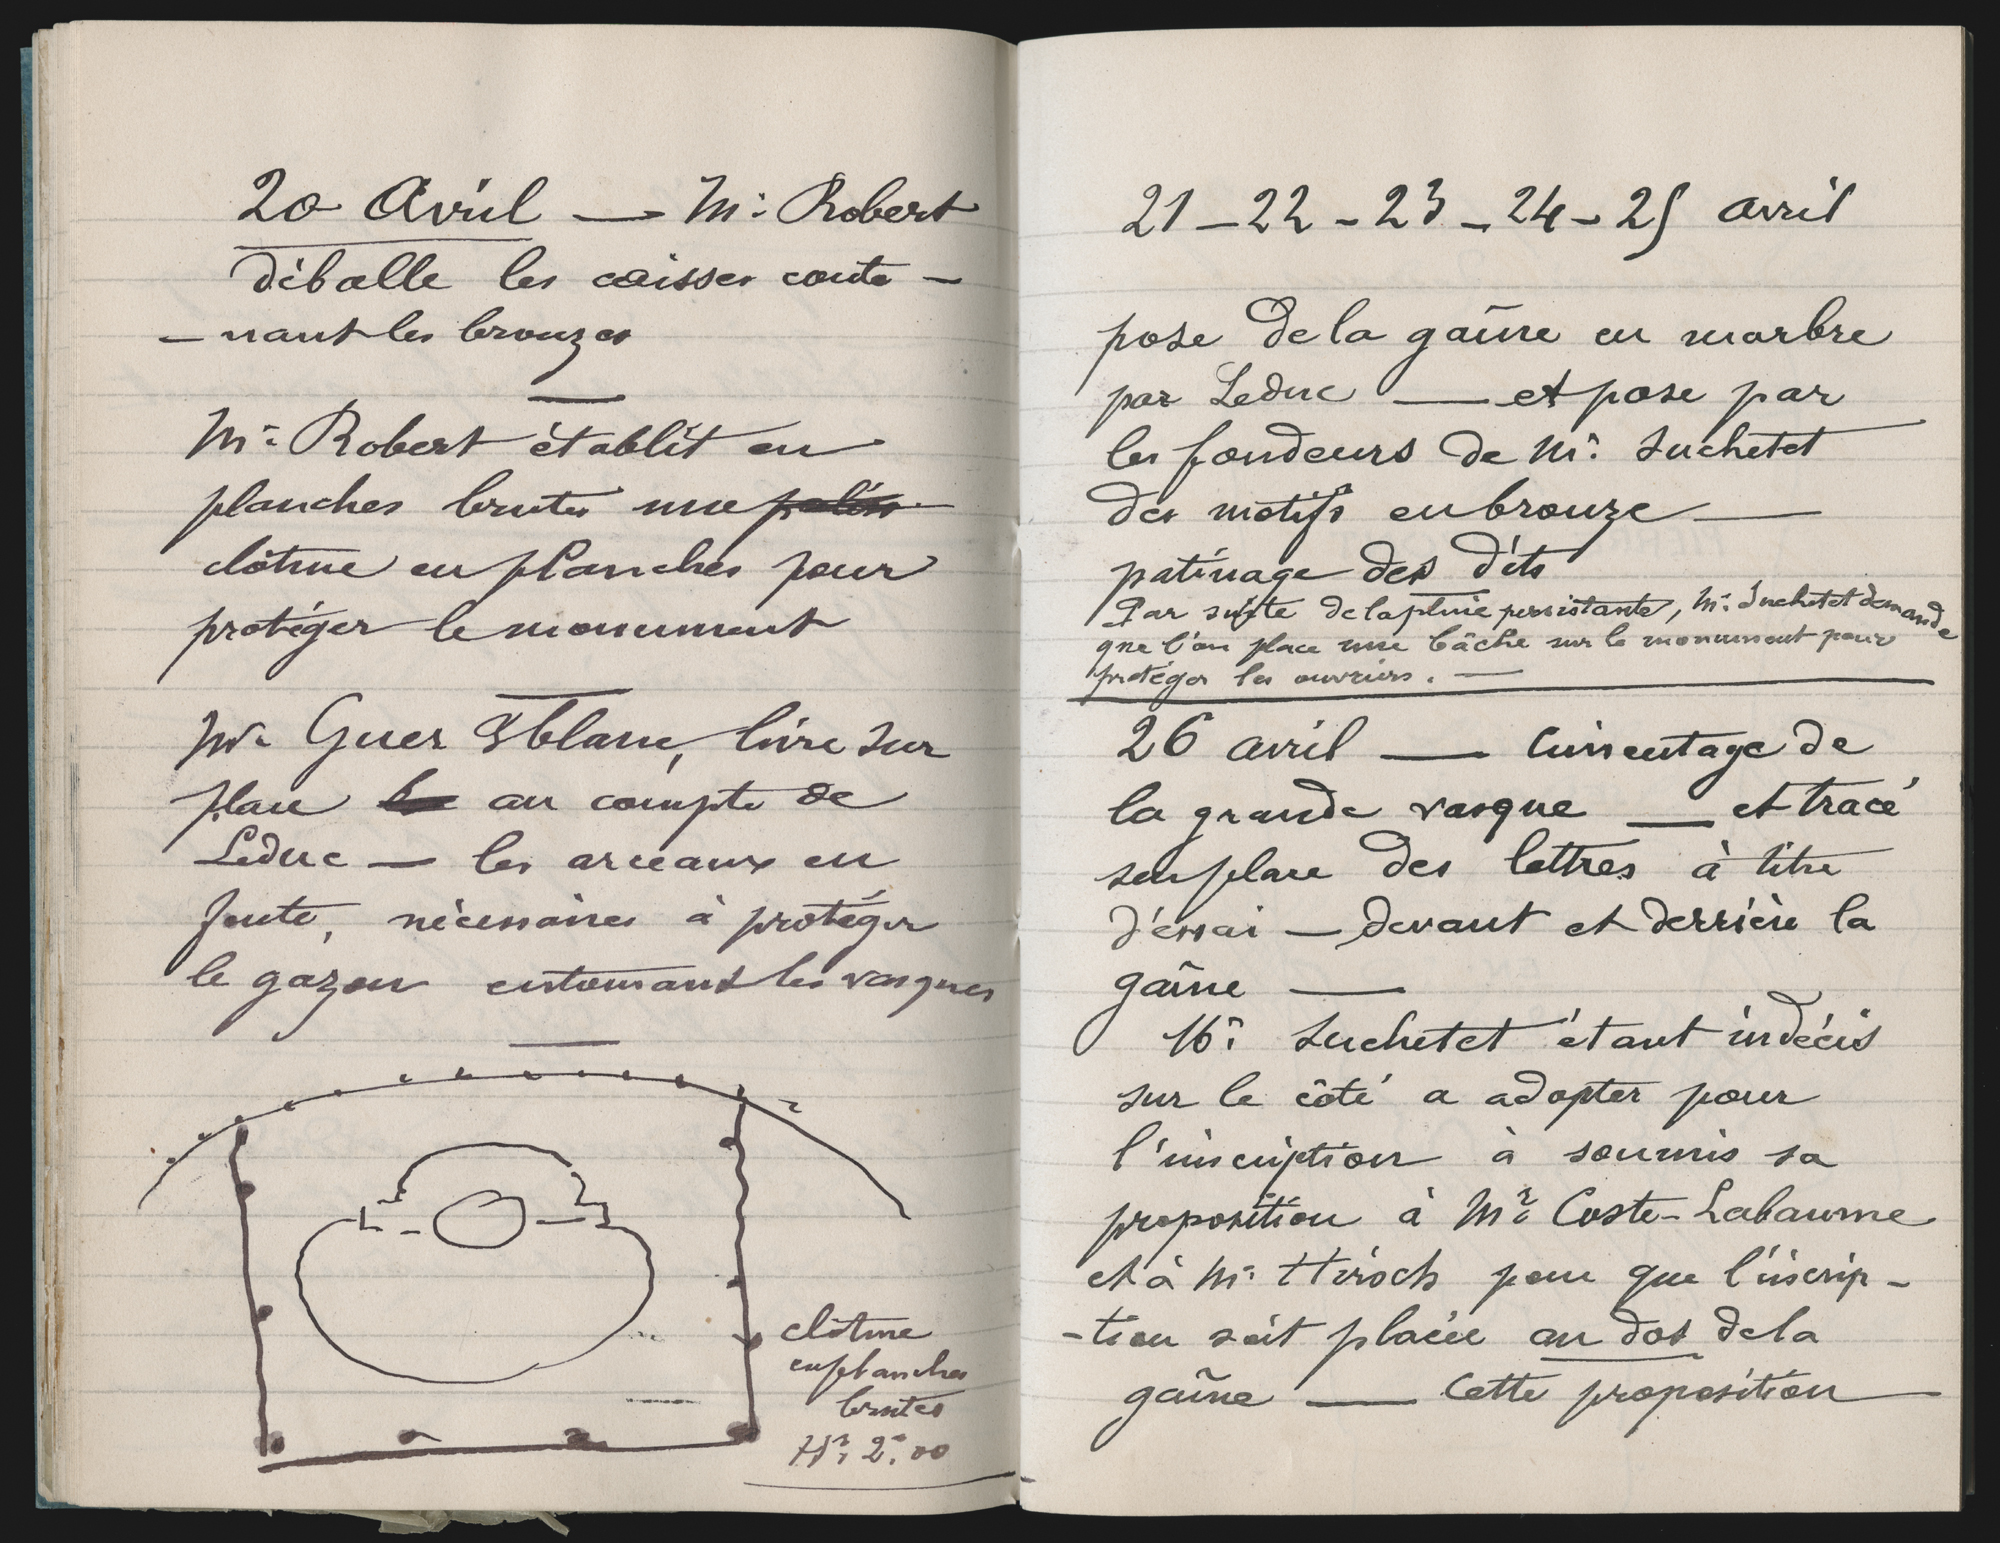 20 Avril — Mr Robert
déballe les caisses conte –
– nant les bronzes
Mr Robert établit en
planches brutes une palis
clôture en planches pour
protéger le monument
Mr Guer Leblanc, livre sur
place au compte de
Leduc — les arceaux en
fonte, nécessaires à protéger
le gazon entourant les vasques
clôture
en planches
brutes
Hr 2m.00
21 – 22 – 23 – 24 – 25 avril
pose de la gaîne en marbre
par Leduc — et pose par
les fondeurs de Mr Suchetet
des motifs en bronze —
patinage des dits
Par suite de la pluie persistante, Mr Suchetet demande
que l'on place une bâche sur le monument pour
protéger les ouvriers. —
26 avril — Cimentage de
la grande vasque — et tracé
sur place des lettres à titre
d'essai — devant et derrière la
gaîne —
Mr Suchetet étant indécis
sur le côté a adopter pour
l'inscription à soumis sa
proposition à Mr Coste-Labaume
et à Mr Hirsch pour que l'inscrip –
– tion soit placée au dos de la
gaîne — Cette proposition —